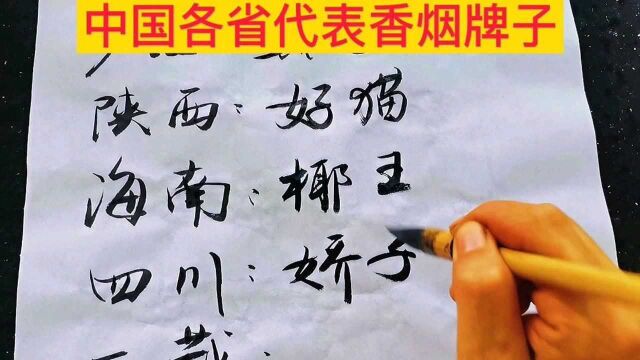 中国各省代表香烟牌子
陕西：好猫
海南：椰王
四川：娇子